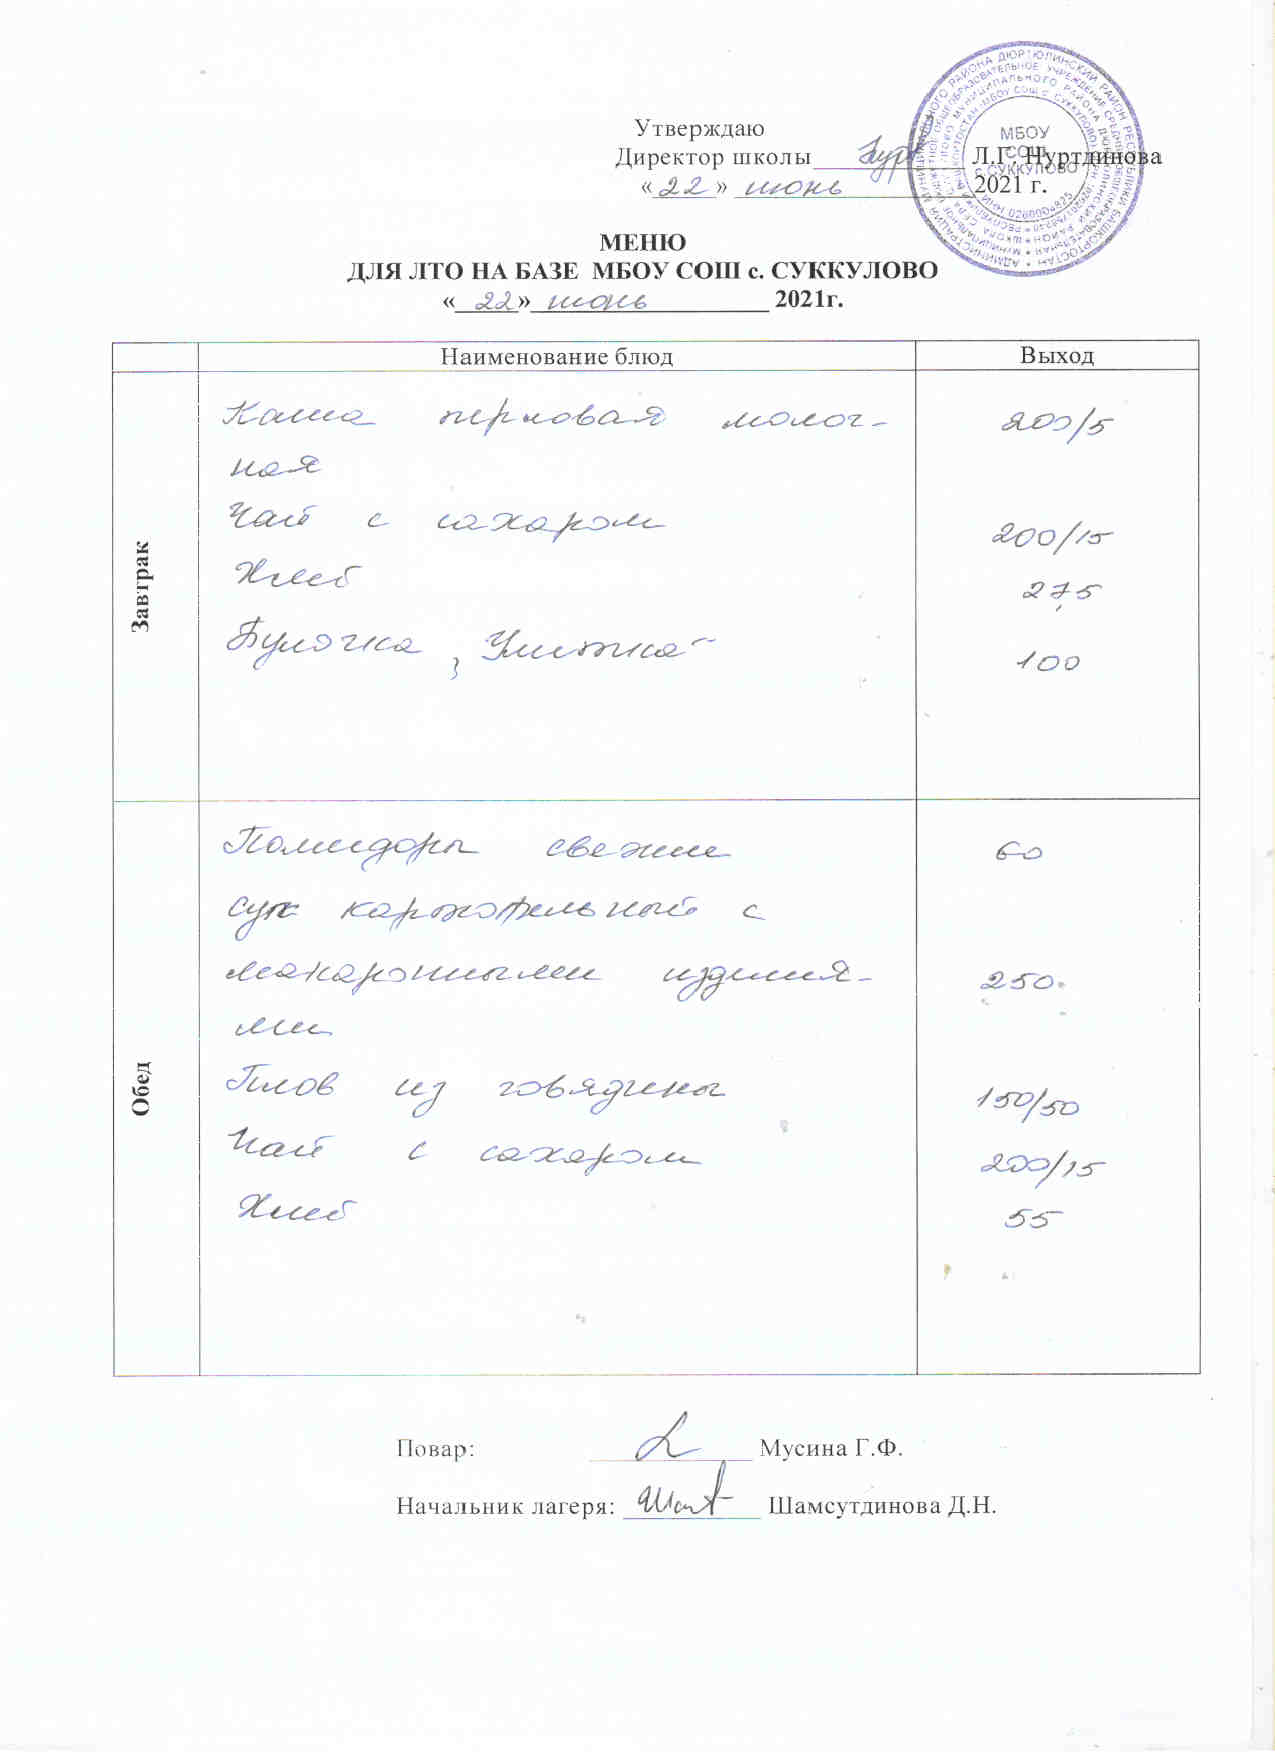 Утверждаю
Директор школы Л.Г. Нуртдинова
«22» июнь 2021 г.
МБОУ
СОШ
с СУККУЛОВО
МЕНЮ
ДЛЯ ЛТО НА БАЗЕ МБОУ СОШ с. СУККУЛОВО
«22» июнь 2021г.
Наименование блюд Выход
Завтрак
Каша перловая молоч- 200/5
ная
Чай с сахаром 200/15
Хлеб 27,5
Булочка „Улитка“ 100
Обед
Помидоры свежие 60
Суп картофельный с
макаронными изделия- 250
ми
Плов из говядины 150/50
Чай с сахаром 200/15
Хлеб 55
Повар: Мусина Г.Ф.
Начальник лагеря: Шамсутдинова Д.Н.